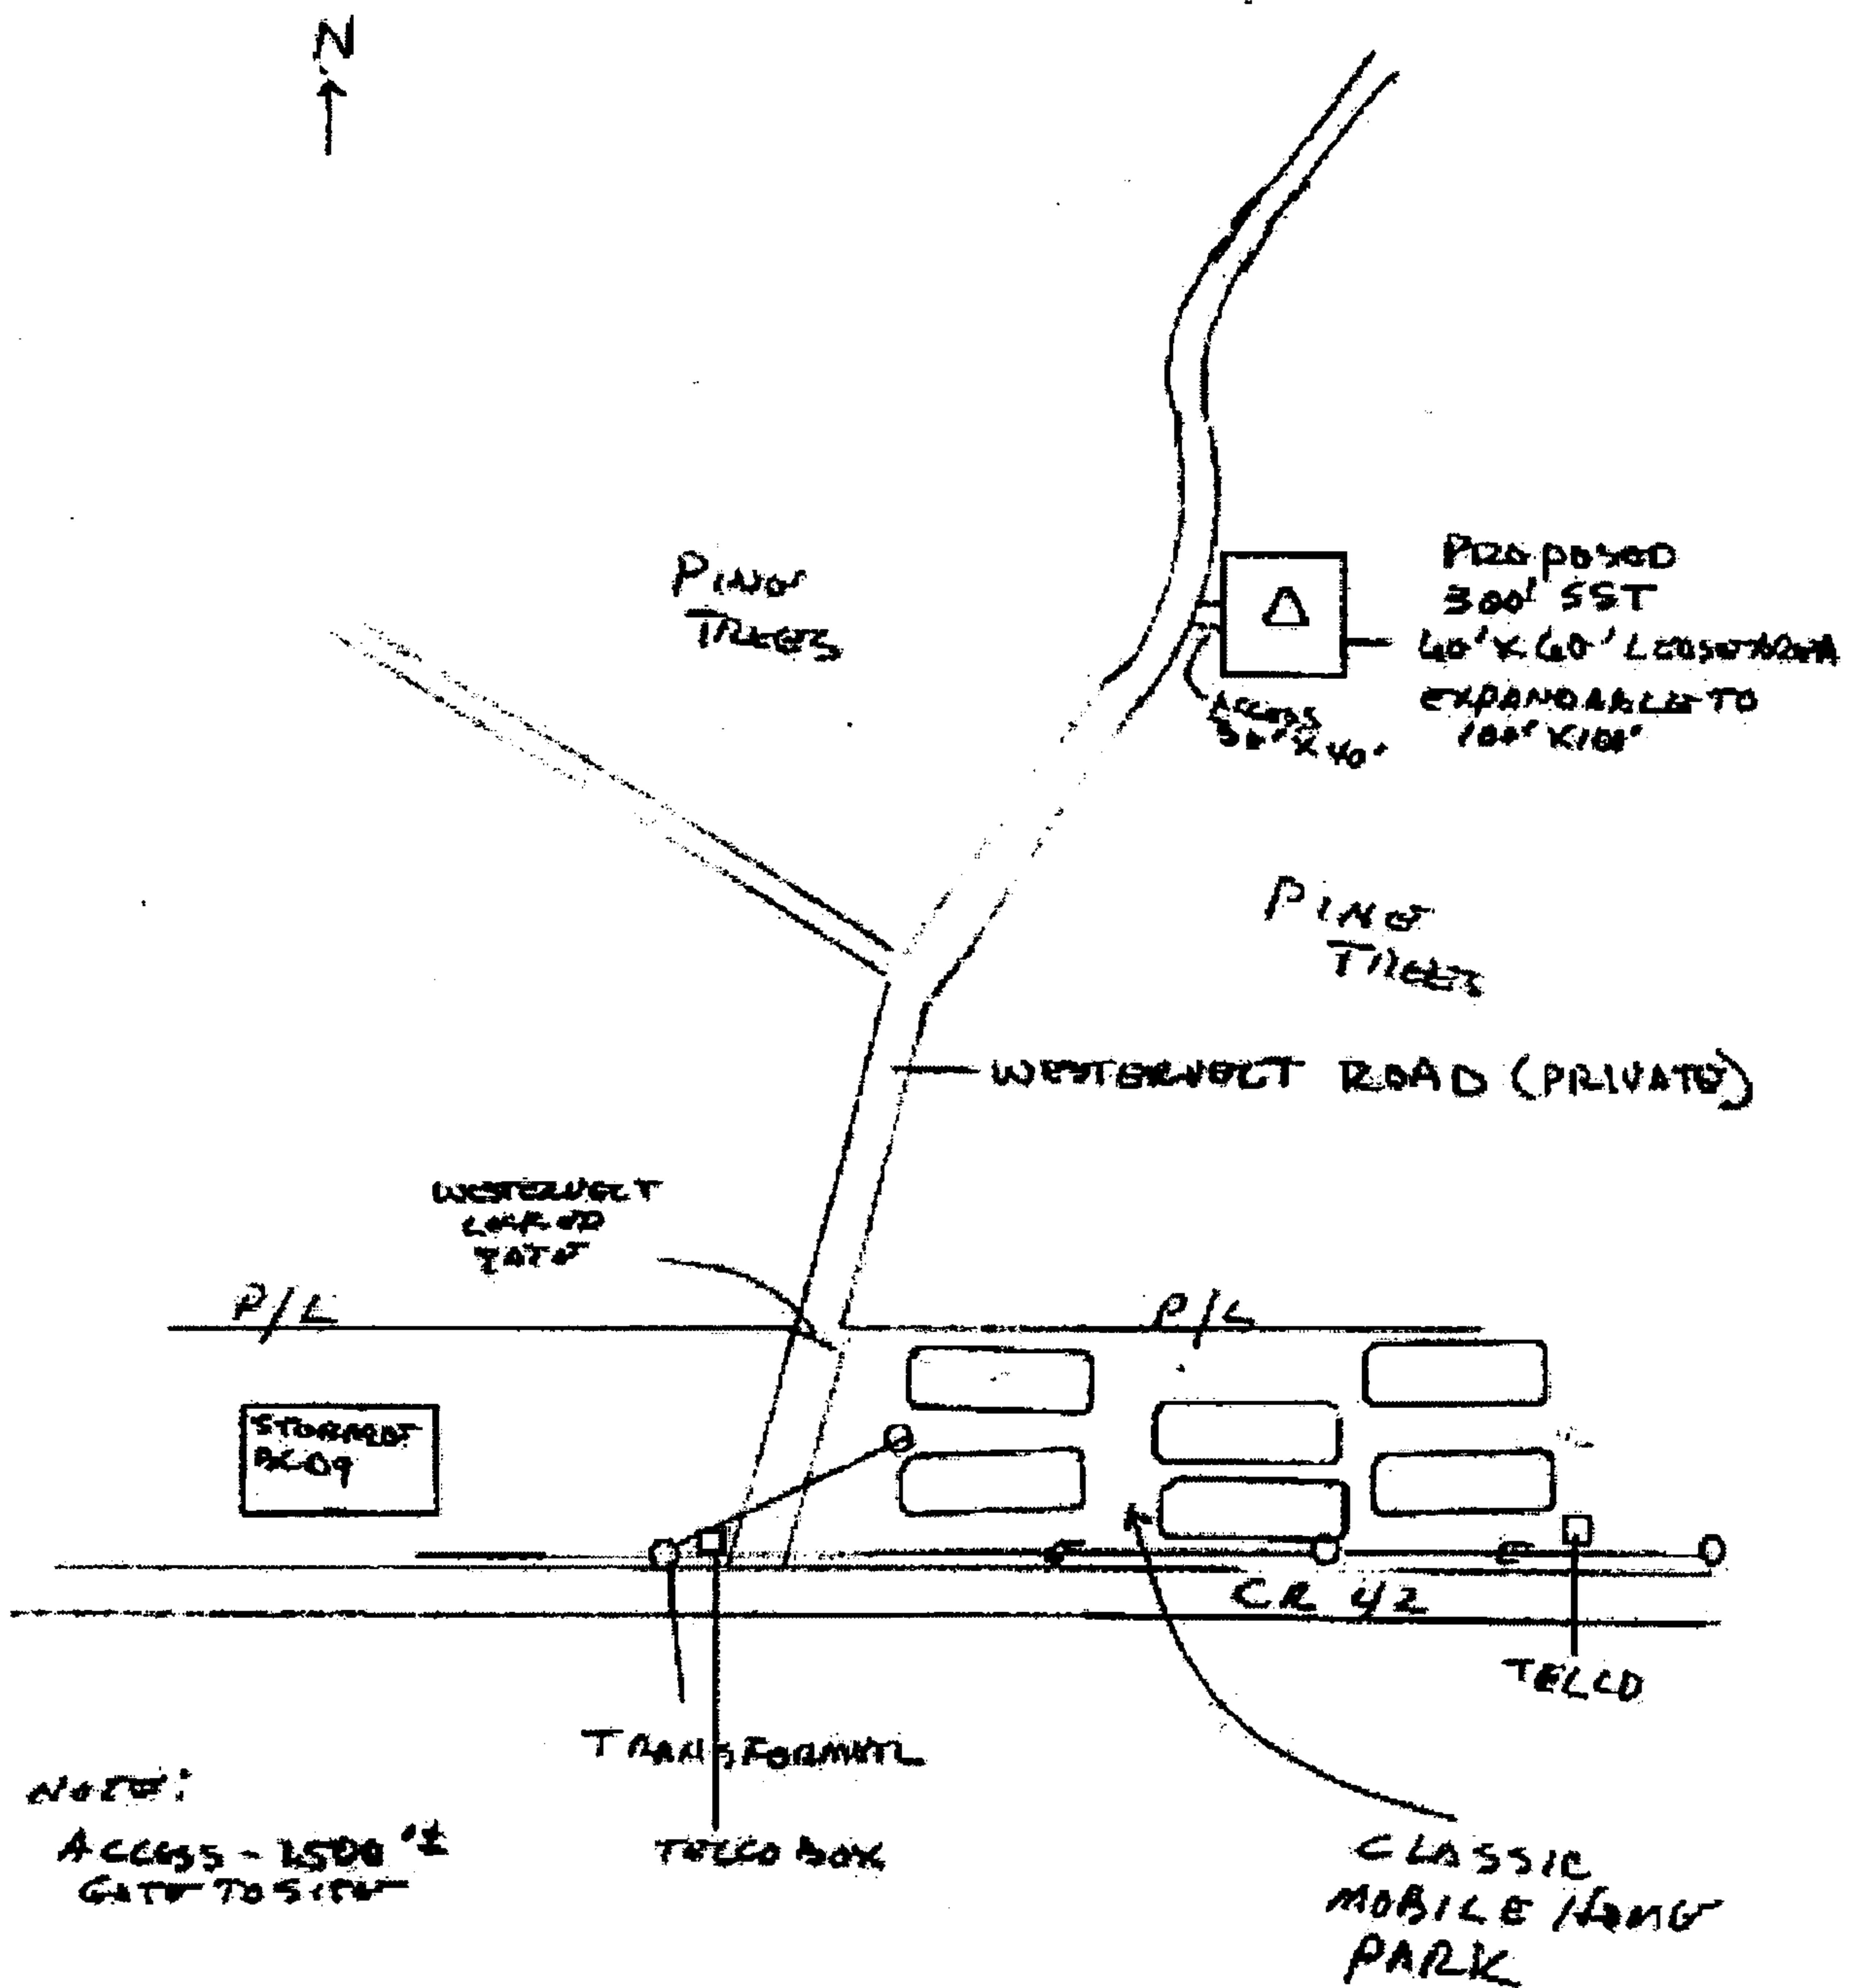 N
PINE
TREES
PROPOSED
300' SST
60' X 60' LEASE AREA
EXPANDABLE TO
100' X 100'
ACCESS
30' X 40'
PINE
TREES
WESTERVELT ROAD (PRIVATE)
WESTERVELT
LOCKED
GATE
P/L
P/L
STORAGE
BLDG
E
E
CR 42
TELCO
TRANSFORMER
TELCO BOX
NOTE:
ACCESS - 1500'±
GATE TO SITE
CLASSIC
MOBILE HOME
PARK